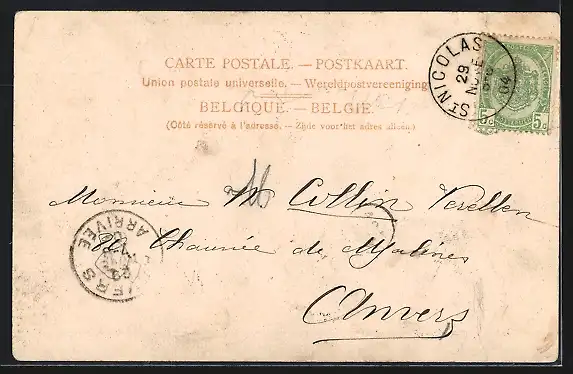 CARTE POSTALE. — POSTKAART.
Union postale universelle. — Wereldpostvereeniging
BELGIQUE. — BELGIË.
(Côté réservé à l'adresse. — Zijde voor het adres alleen.)
ST NICOLAS
29
NOVE
04
5c 5c
Monsieur M Collin Verellen
Chaussée de Malines
Anvers
ARRIVÉE